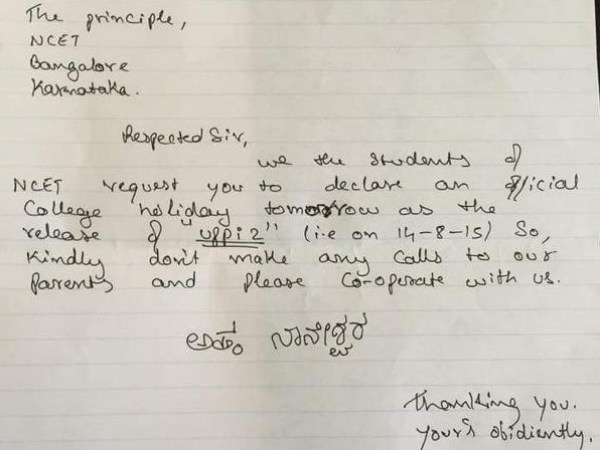 The principle,
NCET
Bangalore
Karnataka.
Respected Sir,
we the students of
NCET request you to declare an official
College holiday tomorrow as the
release of "uppi 2" (i.e on 14-8-15) So,
Kindly don't make any calls to our
Parents and please Co-operate with us.
ಅಹಂ ಬ್ರಾನೇಶ್ವರ
Thanking you.
Your's obidiently.